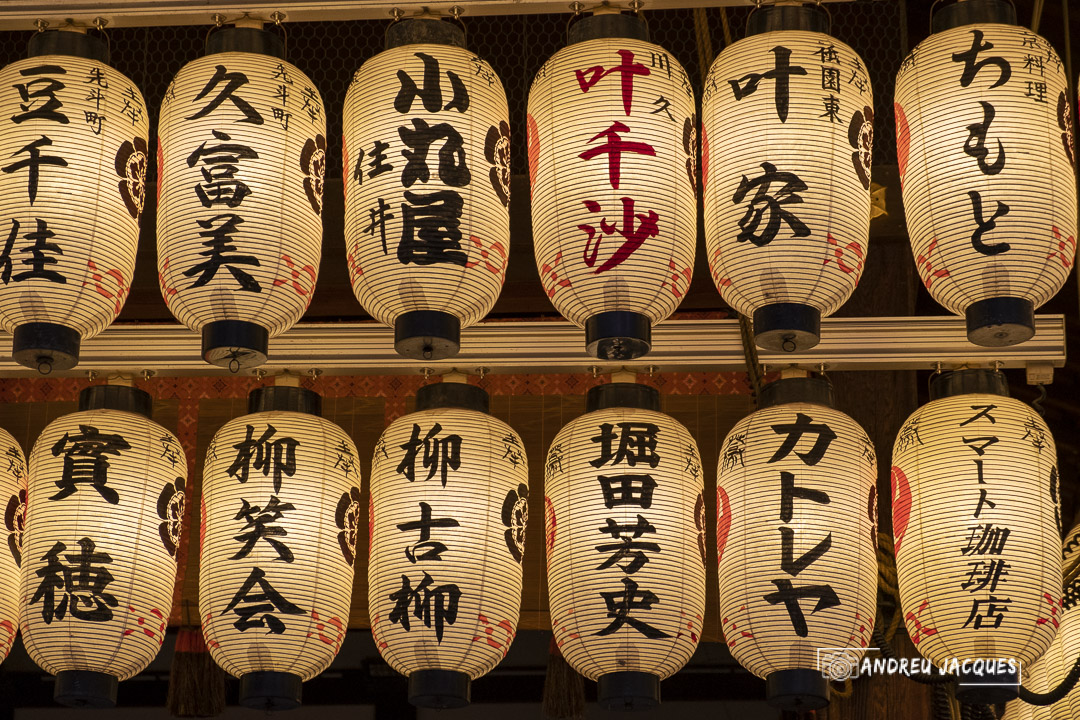 先斗町
豆千佳
先斗町
久富美
小丸屋
住井
川久
叶千沙
祇園東
叶家
京料理
ちもと
實穂
柳笑会
柳古柳
堀田芳史
カトレヤ
スマート珈琲店
ANDREU JACQUES